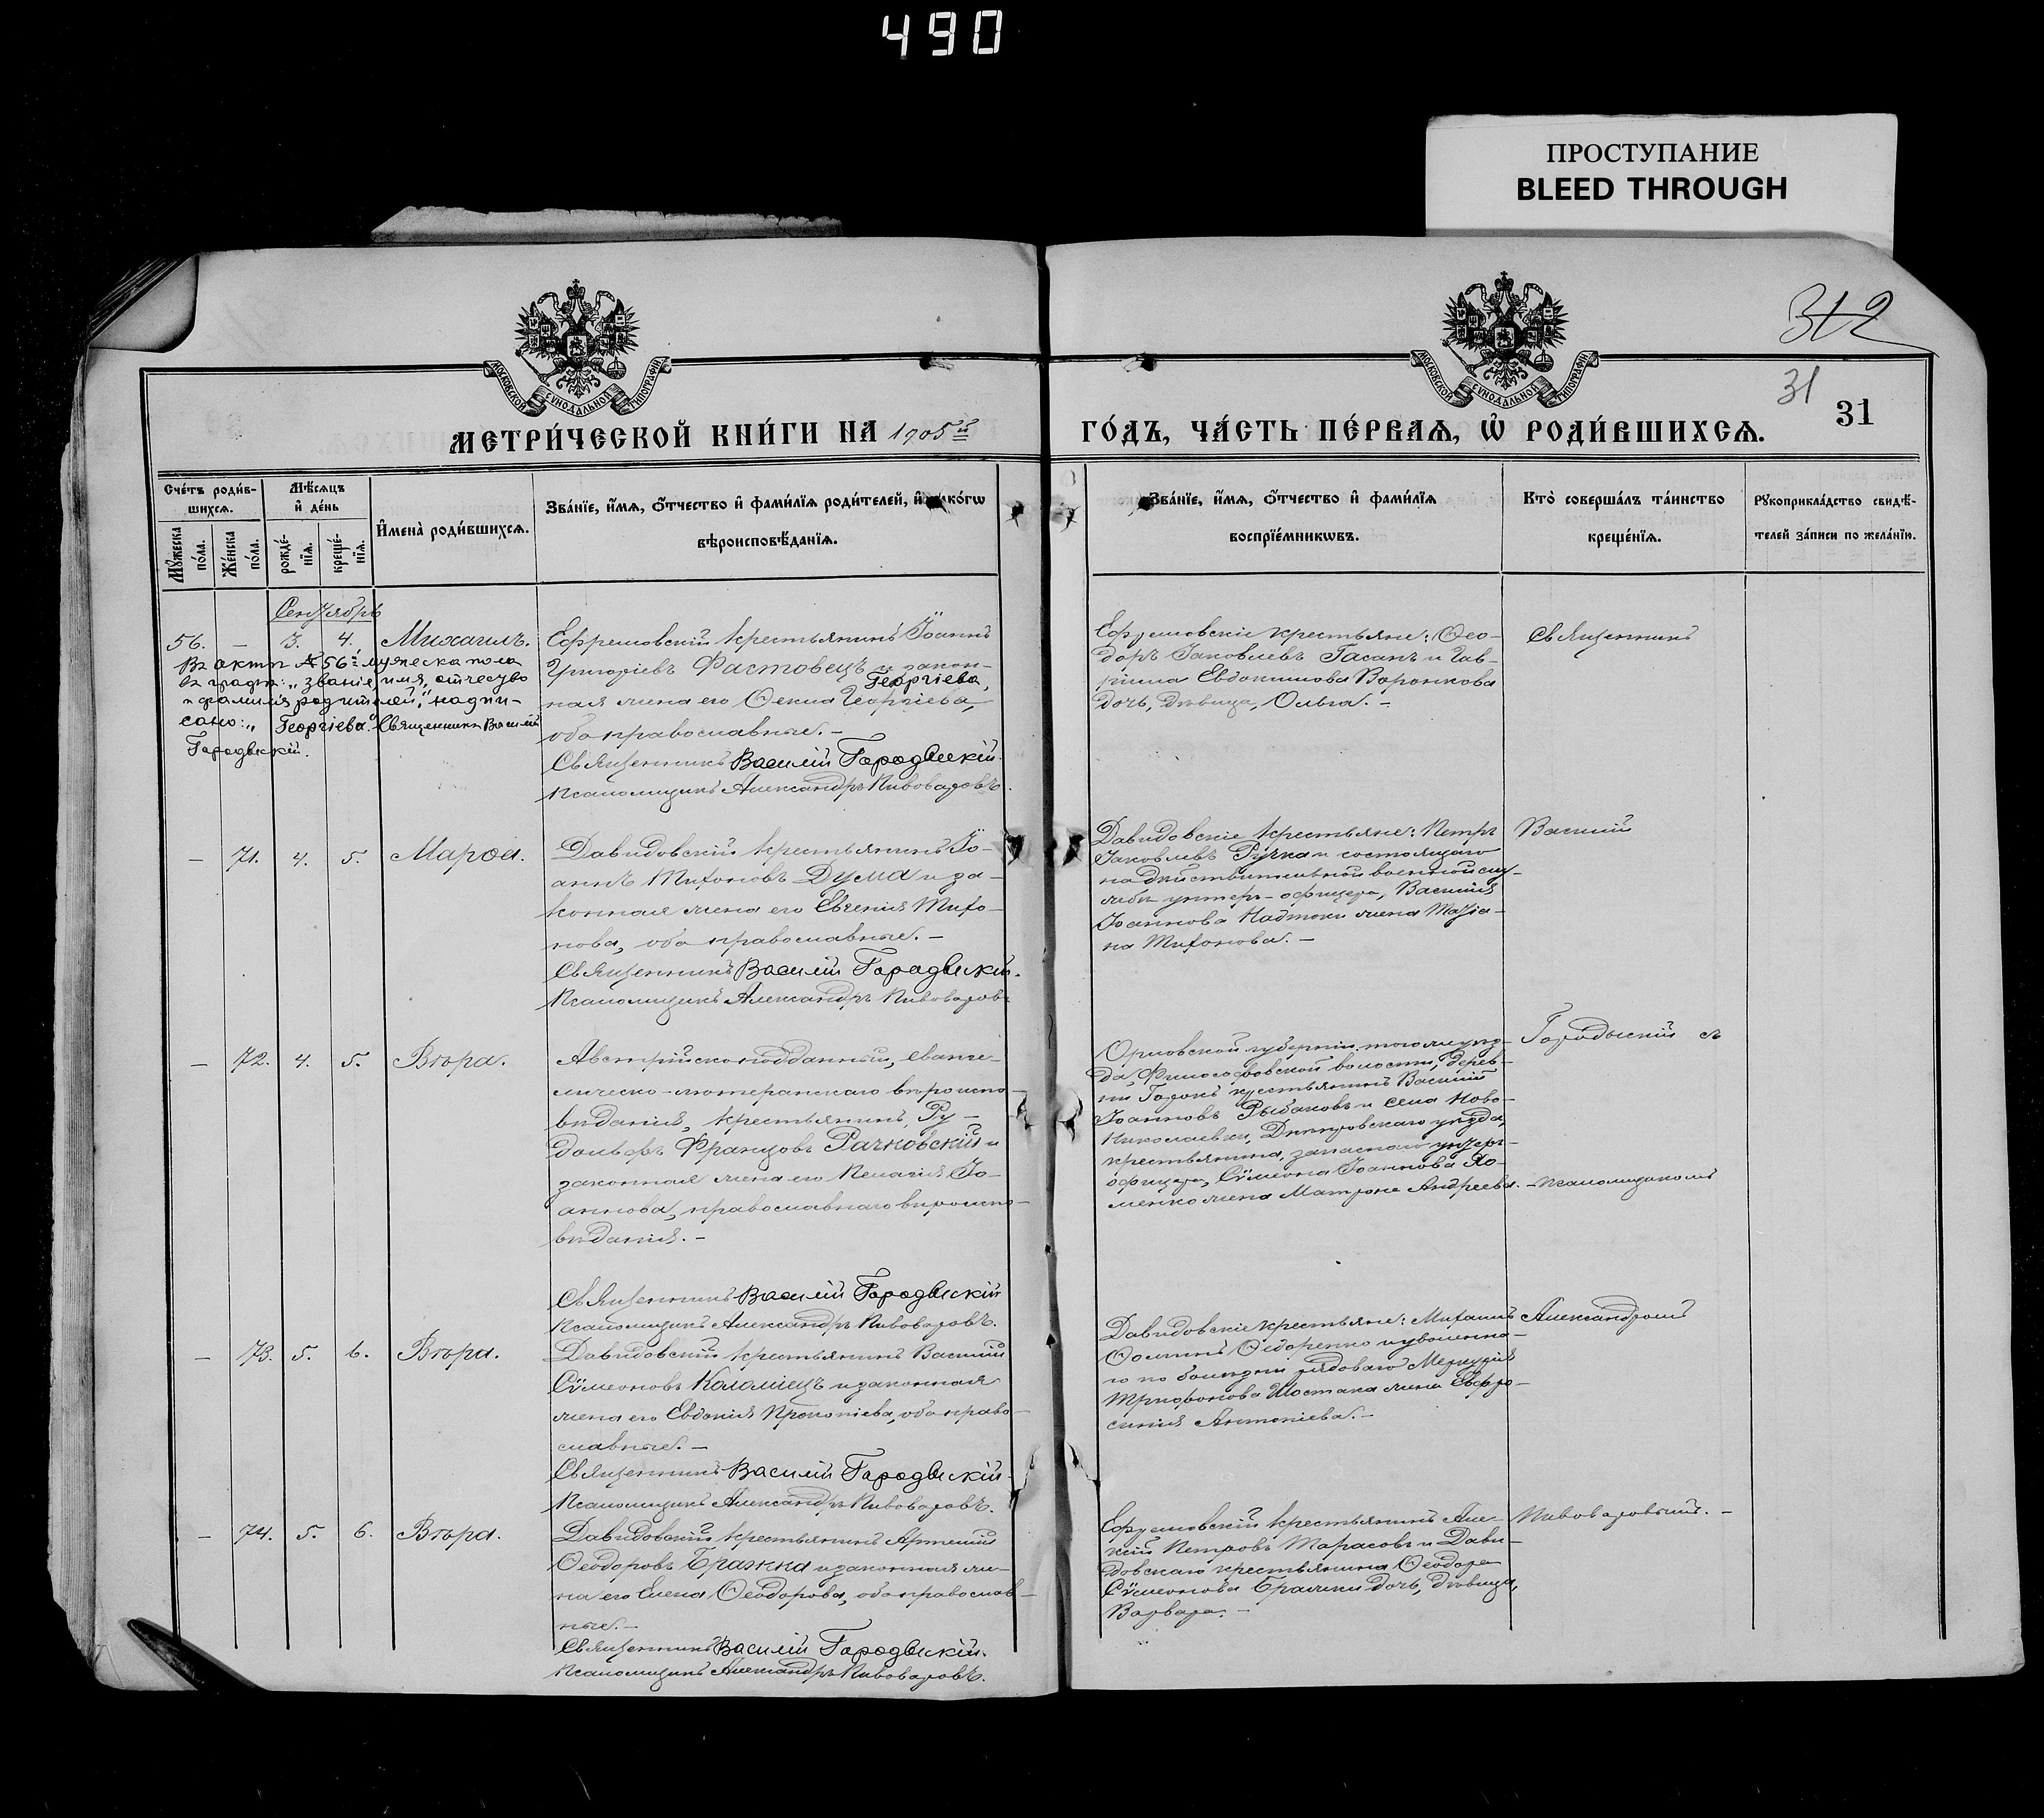 490
ПРОСТУПАНИЕ
BLEED THROUGH
312
31
31
МОСКОВСКОЙ СѴНОДАЛЬНОЙ ТИПОГРАФІИ
МОСКОВСКОЙ СѴНОДАЛЬНОЙ ТИПОГРАФІИ
МЕТРИ́ЧЕСКОЙ КНИ́ГИ НА 1905й
ГО́ДЪ, ЧА́СТЬ ПЕ́РВАѦ, Ѡ҆ РОДИ́ВШИХСѦ.
Сче́тъ роди́в-
шихсѧ.
Мꙋ́жеска
по́ла.
Же́нска
по́ла.
Мѣ́сѧцъ
и҆ де́нь
рожде́-
нїѧ.
креще́-
нїѧ.
И҆мена̀ роди́вшихсѧ.
Зва́нїе, и҆́мѧ, ѻ҆́тчество и҆ фами́лїѧ роди́телей, и҆ како́гѡ
вѣроисповѣ́данїѧ.
Зва́нїе, и҆́мѧ, ѻ҆́тчество и҆ фами́лїѧ
воспрїе́мникѡвъ.
Кто̀ соверша́лъ та́инство
креще́нїѧ.
Рꙋкоприкла́дство свидѣ́-
телей за́писи по жела́нїю.
Сентябрь
56. — 3. 4. Михаилъ.
Въ акте № 56й мужеска пола
въ графе: „званіе, имя, отчество
и фамилія родителей“, надпи-
сано: „Георгіева“. Священникъ Василій
Городыскій.
Ефремовскій крестьянинъ Іоаннъ
Григоріевъ Фастовецъ и закон-
Георгіева,
ная жена его Ѳекла Георгіева,
оба православные. —
Священникъ Василій Городыскій.
Псаломщикъ Александръ Пивоваровъ.
Ефремовскіе крестьяне: Ѳео-
доръ Іаковлевъ Гасанъ и Гав-
ріила Евдокимова Воронкова
дочь, дѣвица, Ольга. —
Священникъ
— 71. 4. 5. Марѳа.
Давидовскій крестьянинъ Іо-
аннъ Тихоновъ Дума и за-
конная жена его Евгенія Тихо-
нова, оба православные. —
Священникъ Василій Городыскій.
Псаломщикъ Александръ Пивоваровъ
Давидовскіе крестьяне: Петръ
Іаковлевъ Ручка и состоящаго
на дѣйствительной военной слу-
жбѣ унтеръ-офицера, Василія
Іоаннова Надтоки жена Татіа-
на Тихонова. —
Василій
— 72. 4. 5. Вѣра.
Австрійскоподданный, еванге-
лическо-лютеранскаго вѣроиспо-
вѣданія, крестьянинъ, Ру-
дольфъ Францовъ Рачковскій и
законная жена его Пелагія Іо-
аннова, православнаго вѣроиспо-
вѣданія. —
Священникъ Василій Городыскій
Псаломщикъ Александръ Пивоваровъ.
Орловской губерніи, того же уѣз-
да, Философовской волости, дерев-
ни крестьянинъ Василій
Іоанновъ Рыбаковъ и села Ново-
Николаевки, Днѣпровскаго уѣзда,
крестьянина, запаснаго унтеръ-
офицера, Сѵмеона Іоаннова Хо-
менко жена Матрона Андреева. —
Городыскій съ
псаломщикомъ
— 73. 5. 6. Вѣра.
Давидовскій крестьянинъ Василій
Сѵмеоновъ Коломіецъ и законная
жена его Евдокія Прокопіева, оба право-
славные. —
Священникъ Василій Городыскій.
Псаломщикъ Александръ Пивоваровъ.
Давидовскіе крестьяне: Михаилъ
Ѳоминъ Ѳедоренко и уволенна-
го по болѣзни рядоваго Меркурія
Трифонова Шостака жена Евфро-
синія Антоніева. —
Александромъ
— 74. 5. 6. Вѣра.
Давидовскій крестьянинъ Артемій
Ѳеодоровъ Бражка и законная же-
на его Елена Ѳеодорова, оба православ-
ные. —
Священникъ Василій Городыскій.
Псаломщикъ Александръ Пивоваровъ.
Ефремовскій крестьянинъ Але-
ксій Петровъ Тарасовъ и Дави-
довскаго крестьянина Ѳеодора
Сѵмеонова Бражки дочь, дѣвица,
Варвара. —
Пивоваровымъ. —